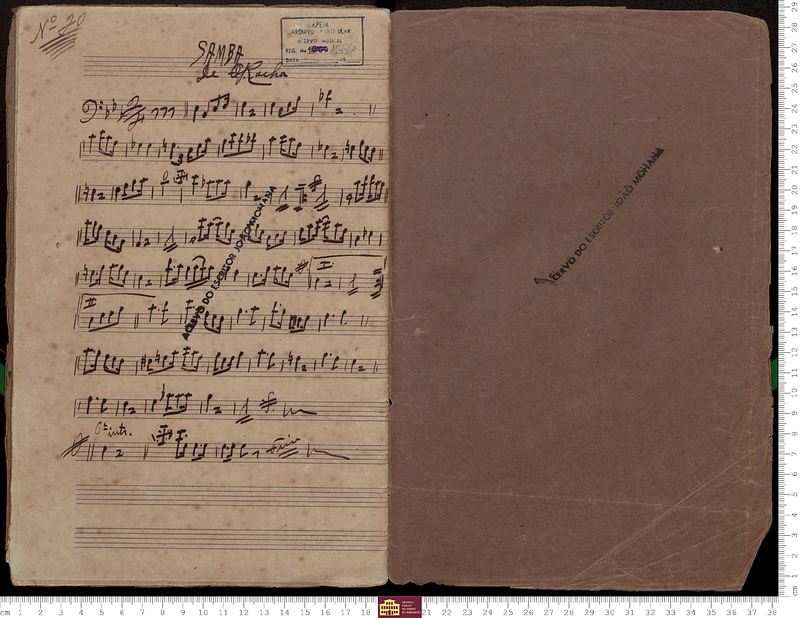 Nº 20
SAMBA
de Rocha
APEM
ARQUIVO PARTICULAR
ACERVO MUSICAL
REG. No
DATA
I
II
Pª intr.
Fim
ACERVO DO ESCRITOR JOÃO MOHANA
ACERVO DO ESCRITOR JOÃO MOHANA
cm 1 2 3 4 5 6 7 8 9 10 11 12 13 14 15 16 17 18 21 22 23 24 25 26 27 28 29 30 31 32 33 34 35 36 37 38
29
28
27
26
25
24
23
22
21
20
19
18
17
16
15
14
13
12
11
10
9
8
7
6
5
4
3
2
1
cm